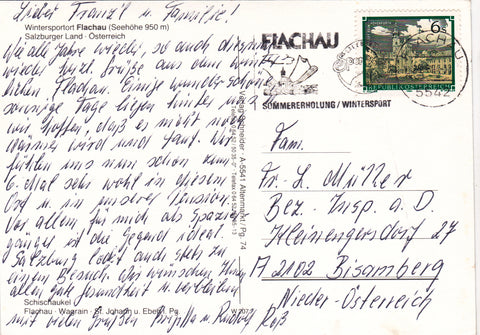 Lieber Franz'l u. Familie!
Wintersportort Flachau (Seehöhe 950 m)
Salzburger Land - Österreich
Wie alle Jahre wieder, so auch diesmal
wieder herzl. Grüße aus dem winter-
lichen Flachau. Einige wunderschöne
sonnige Tage liegen hinter uns
wir hoffen, daß es nicht noch
wärmer wird und taut. Wir
fühlen uns nun schon zum
6. Mal sehr wohl in diesem
Ort u. in unserer Pension.
Vor allem für mich als Spazier-
gänger ist die Gegend ideal.
Salzburg lockt auch stets zu
einem Besuch. Wir wünschen Ihnen
allen gute Gesundheit u. verbleiben
Schischaukel
Flachau - Wagrain - St. Johann u. Eben i. Pg.
mit vielen Grüßen
A-5541 Altenmarkt / Pg. 74
FLACHAU
SOMMERERHOLUNG / WINTERSPORT
6 S
REPUBLIK ÖSTERREICH
5542
Fam.
Fr. L. Müller
Bez. Insp. a. D.
Kleinengersdorf 27
A 2102 Bisamberg
Nieder-Österreich